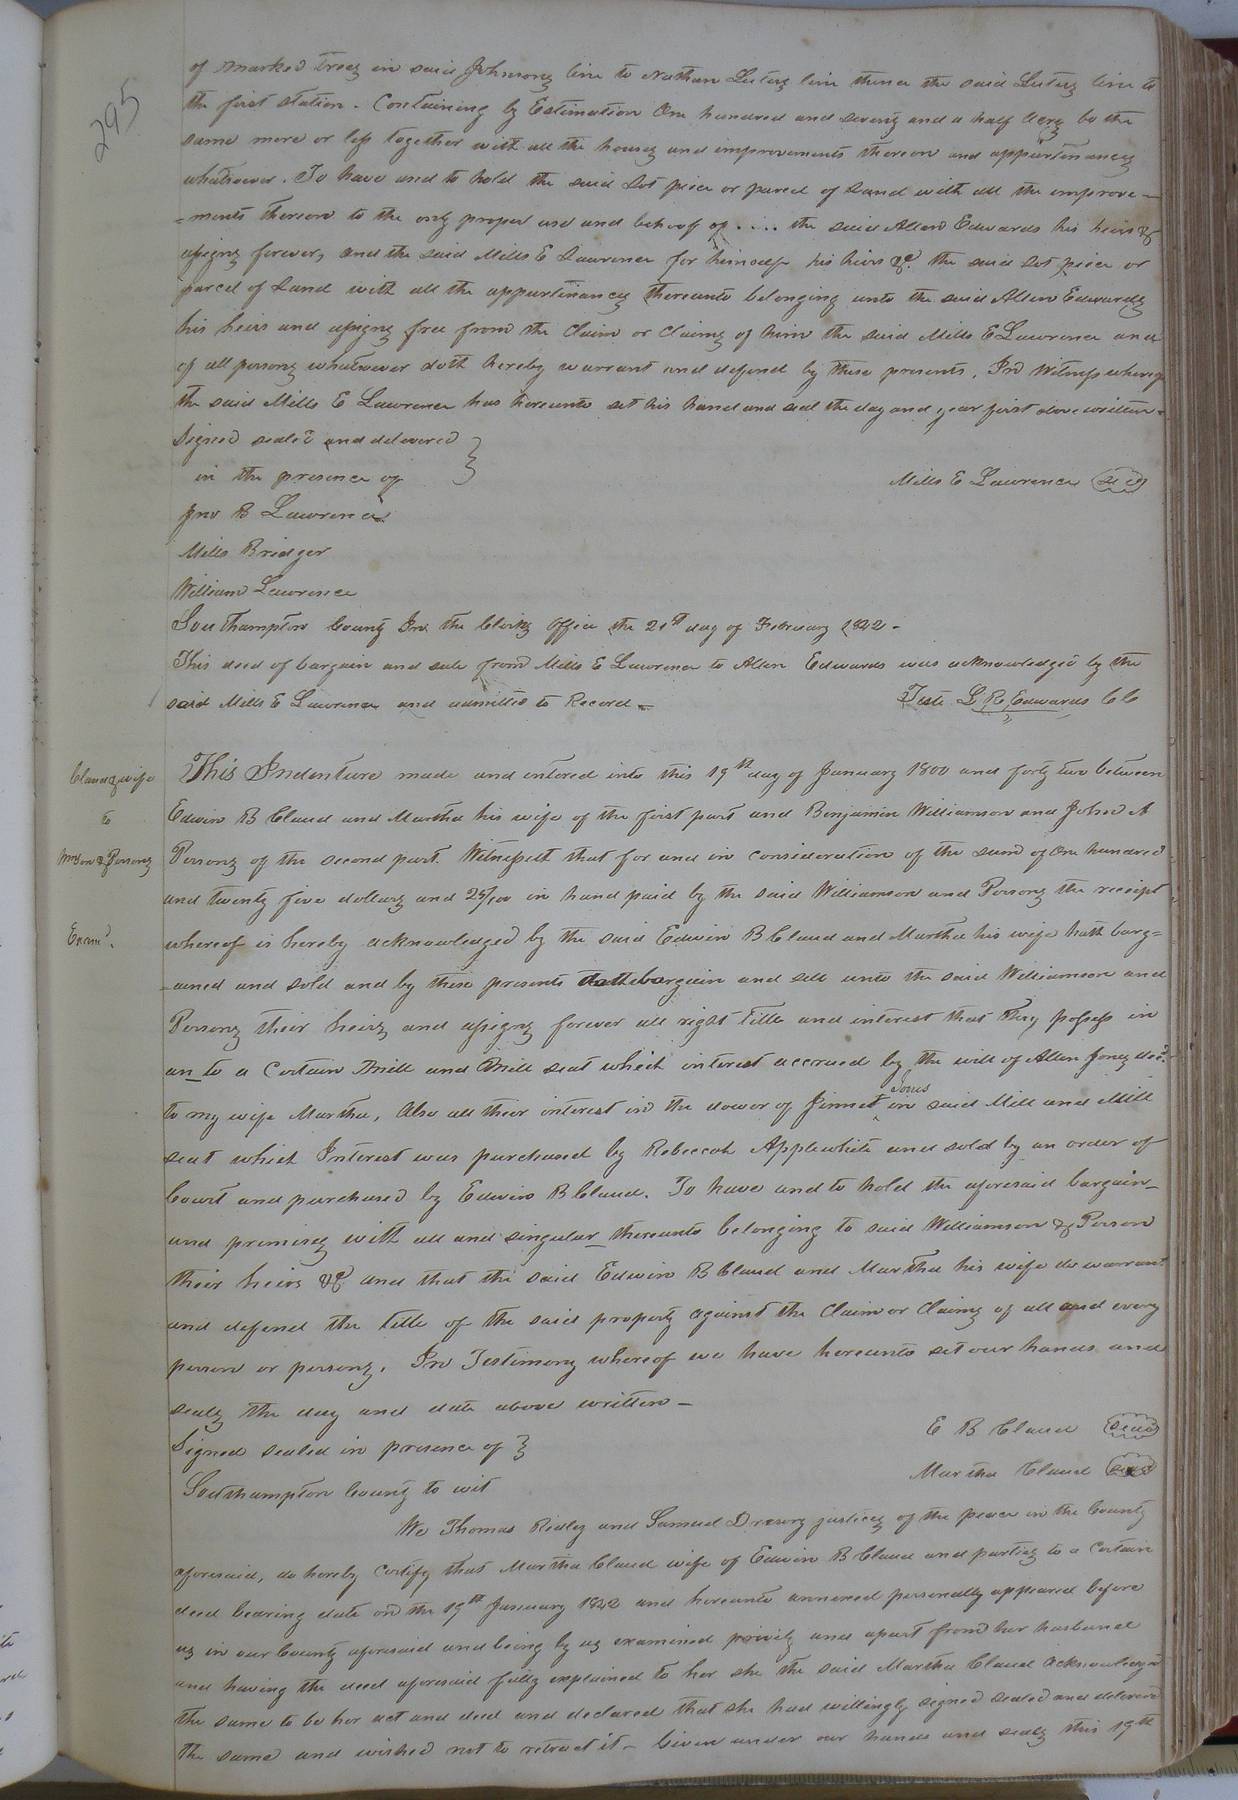 295
of marked trees in said Johnsons line to Nathan Luters line thence the said Luters line to
the first station. Containing by Estimation One hundred and seventy and a half Acres be the
same more or less together with all the houses and improvements thereon and appurtenances
whatsoever. To have and to hold the said Lot piece or parcel of Land with all the improve-
-ments thereon to the only proper use and behoof of .... the said Allen Edwards his heirs &
assigns forever, and the said Mills E Lawrence for himself his heirs &c. the said Lot piece or
parcel of Land with all the appurtinances thereunto belonging unto the said Allen Edwards
his heirs and assigns free from the Claim or Claims of him the said Mills E Lawrence and
of all persons whatsoever doth hereby warrant and defend by these presents. In Witness whereof
the said Mills E Lawrence has hereunto set his hand and seal the day and year first above written.
Signed sealed and delivered
in the presence of
Mills E Lawrence
Jno B Lawrence
Mills Bridger
William Lawrence
Southampton County In the Clerks Office the 21st day of February 1842 -
This deed of bargain and sale from Mills E Lawrence to Allen Edwards was acknowledged by the
said Mills E Lawrence and admitted to Record -
Teste L R Edwards CC
Claud & wife
to
Wmson & Persons
Examd.
This Indenture made and entered into this 19th day of January 1800 and forty two between
Edwin B Claud and Martha his wife of the first part and Benjamin Williamson and John A
Persons of the second part. Witnesseth that for and in consideration of the sum of One hundred
and twenty five dollars and 25/100 in hand paid by the said Williamson and Persons the receipt
whereof is hereby acknowledged by the said Edwin B Claud and Martha his wife hath barg=
-ained and sold and by these presents doth bargain and sell unto the said Williamson and
Persons their heirs and assigns forever all right title and interest that they possess in
an_to a Certain Mill and Mill seat which interest accrued by the will of Allen Jones decd.
to my wife Martha, Also all their interest in the dower of Jinnet Jones in said Mill and Mill
seat which Interest was purchased by Rebeccah Applewhite and sold by an order of
Court and purchased by Edwin B Claud. To have and to hold the aforesaid bargain_
and premises with all and singular_ thereunto belonging to said Williamson & Person
their heirs &c. and that the said Edwin B Claud and Martha his wife do warrant
and defend the title of the said property against the Claim or Claims of all and every
person or persons. In Testimony whereof we have hereunto set our hands and
seals the day and date above written -
Signed sealed in presence of
E B Claud seal
Martha Claud seal
Southampton County to wit
We Thomas Ridley and Samuel Drewry justices of the peace in the County
aforesaid, do hereby Certify that Martha Claud wife of Edwin B Claud and parties to a Certain
deed bearing date on the 19th January 1842 and hereunto annexed personally appeared before
us in our County aforesaid and being by us examined privily and apart from her husband
and having the deed aforesaid fully explained to her she the said Martha Claud acknowledged
the same to be her act and deed and declared that she had willingly signed sealed and delivered
the same and wished not to retract it - Given under our hands and seals this 19th